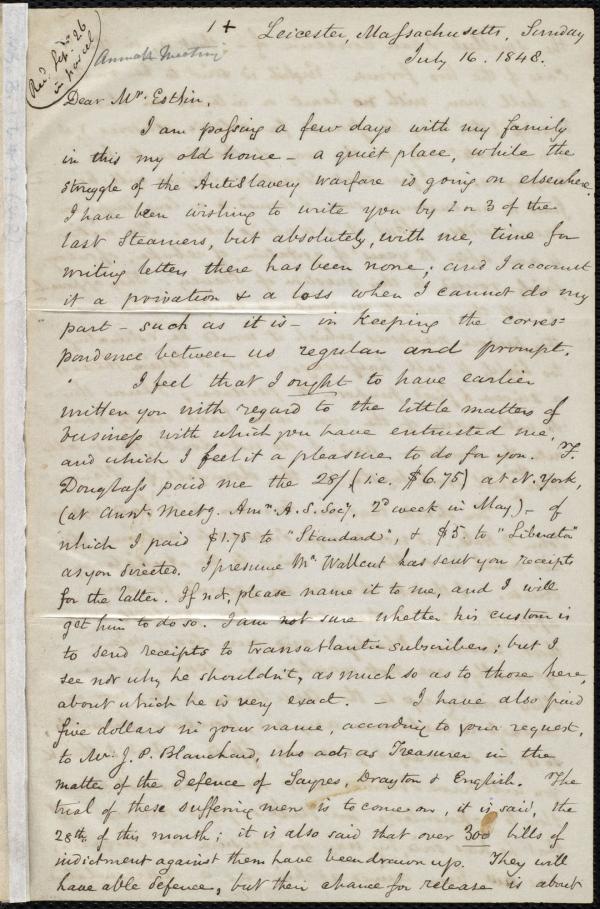 1 +
Recd. Sep. 26
in parcel
Annual Meeting
Leicester, Massachusetts, Sunday
July 16. 1848.
Dear Mr. Estlin,
I am passing a few days with my family
in this my old home – a quiet place, while the
struggle of the AntiSlavery warfare is going on elsewhere.
I have been wishing to write you by 2 or 3 of the
last Steamers, but absolutely, with me, time for
writing letters there has been none; and I account
it a privation & a loss when I cannot do my
part – such as it is – in keeping the corres=
pondence between us regular and prompt.
I feel that I ought to have earlier
written you with regard to the little matters of
business with which you have entrusted me,
and which I feel it a pleasure to do for you. F.
Douglass paid me the 28/ (i.e. $6.75) at N. York,
(at Annl. Meetg. Amn. A. S. Socy, 2d week in May) – of
which I paid $1.75 to "Standard", & $5. to "Liberator"
as you directed. I presume Mr. Wallcut has sent you receipts
for the latter. If not, please name it to me, and I will
get him to do so. I am not sure whether his custom is
to send receipts to transatlantic subscribers; but I
see not why he shouldn't, as much so as to those here,
about which he is very exact. – I have also paid
five dollars in your name, according to your request,
to Mr. J. P. Blanchard, who acts as Treasurer in the
matter of the defence of Sayres, Drayton & English. The
trial of these suffering men is to come on, it is said, the
28th. of this month; it is also said that over 300 bills of
indictment against them have been drawn up. They will
have able defence, but their chance for release is about